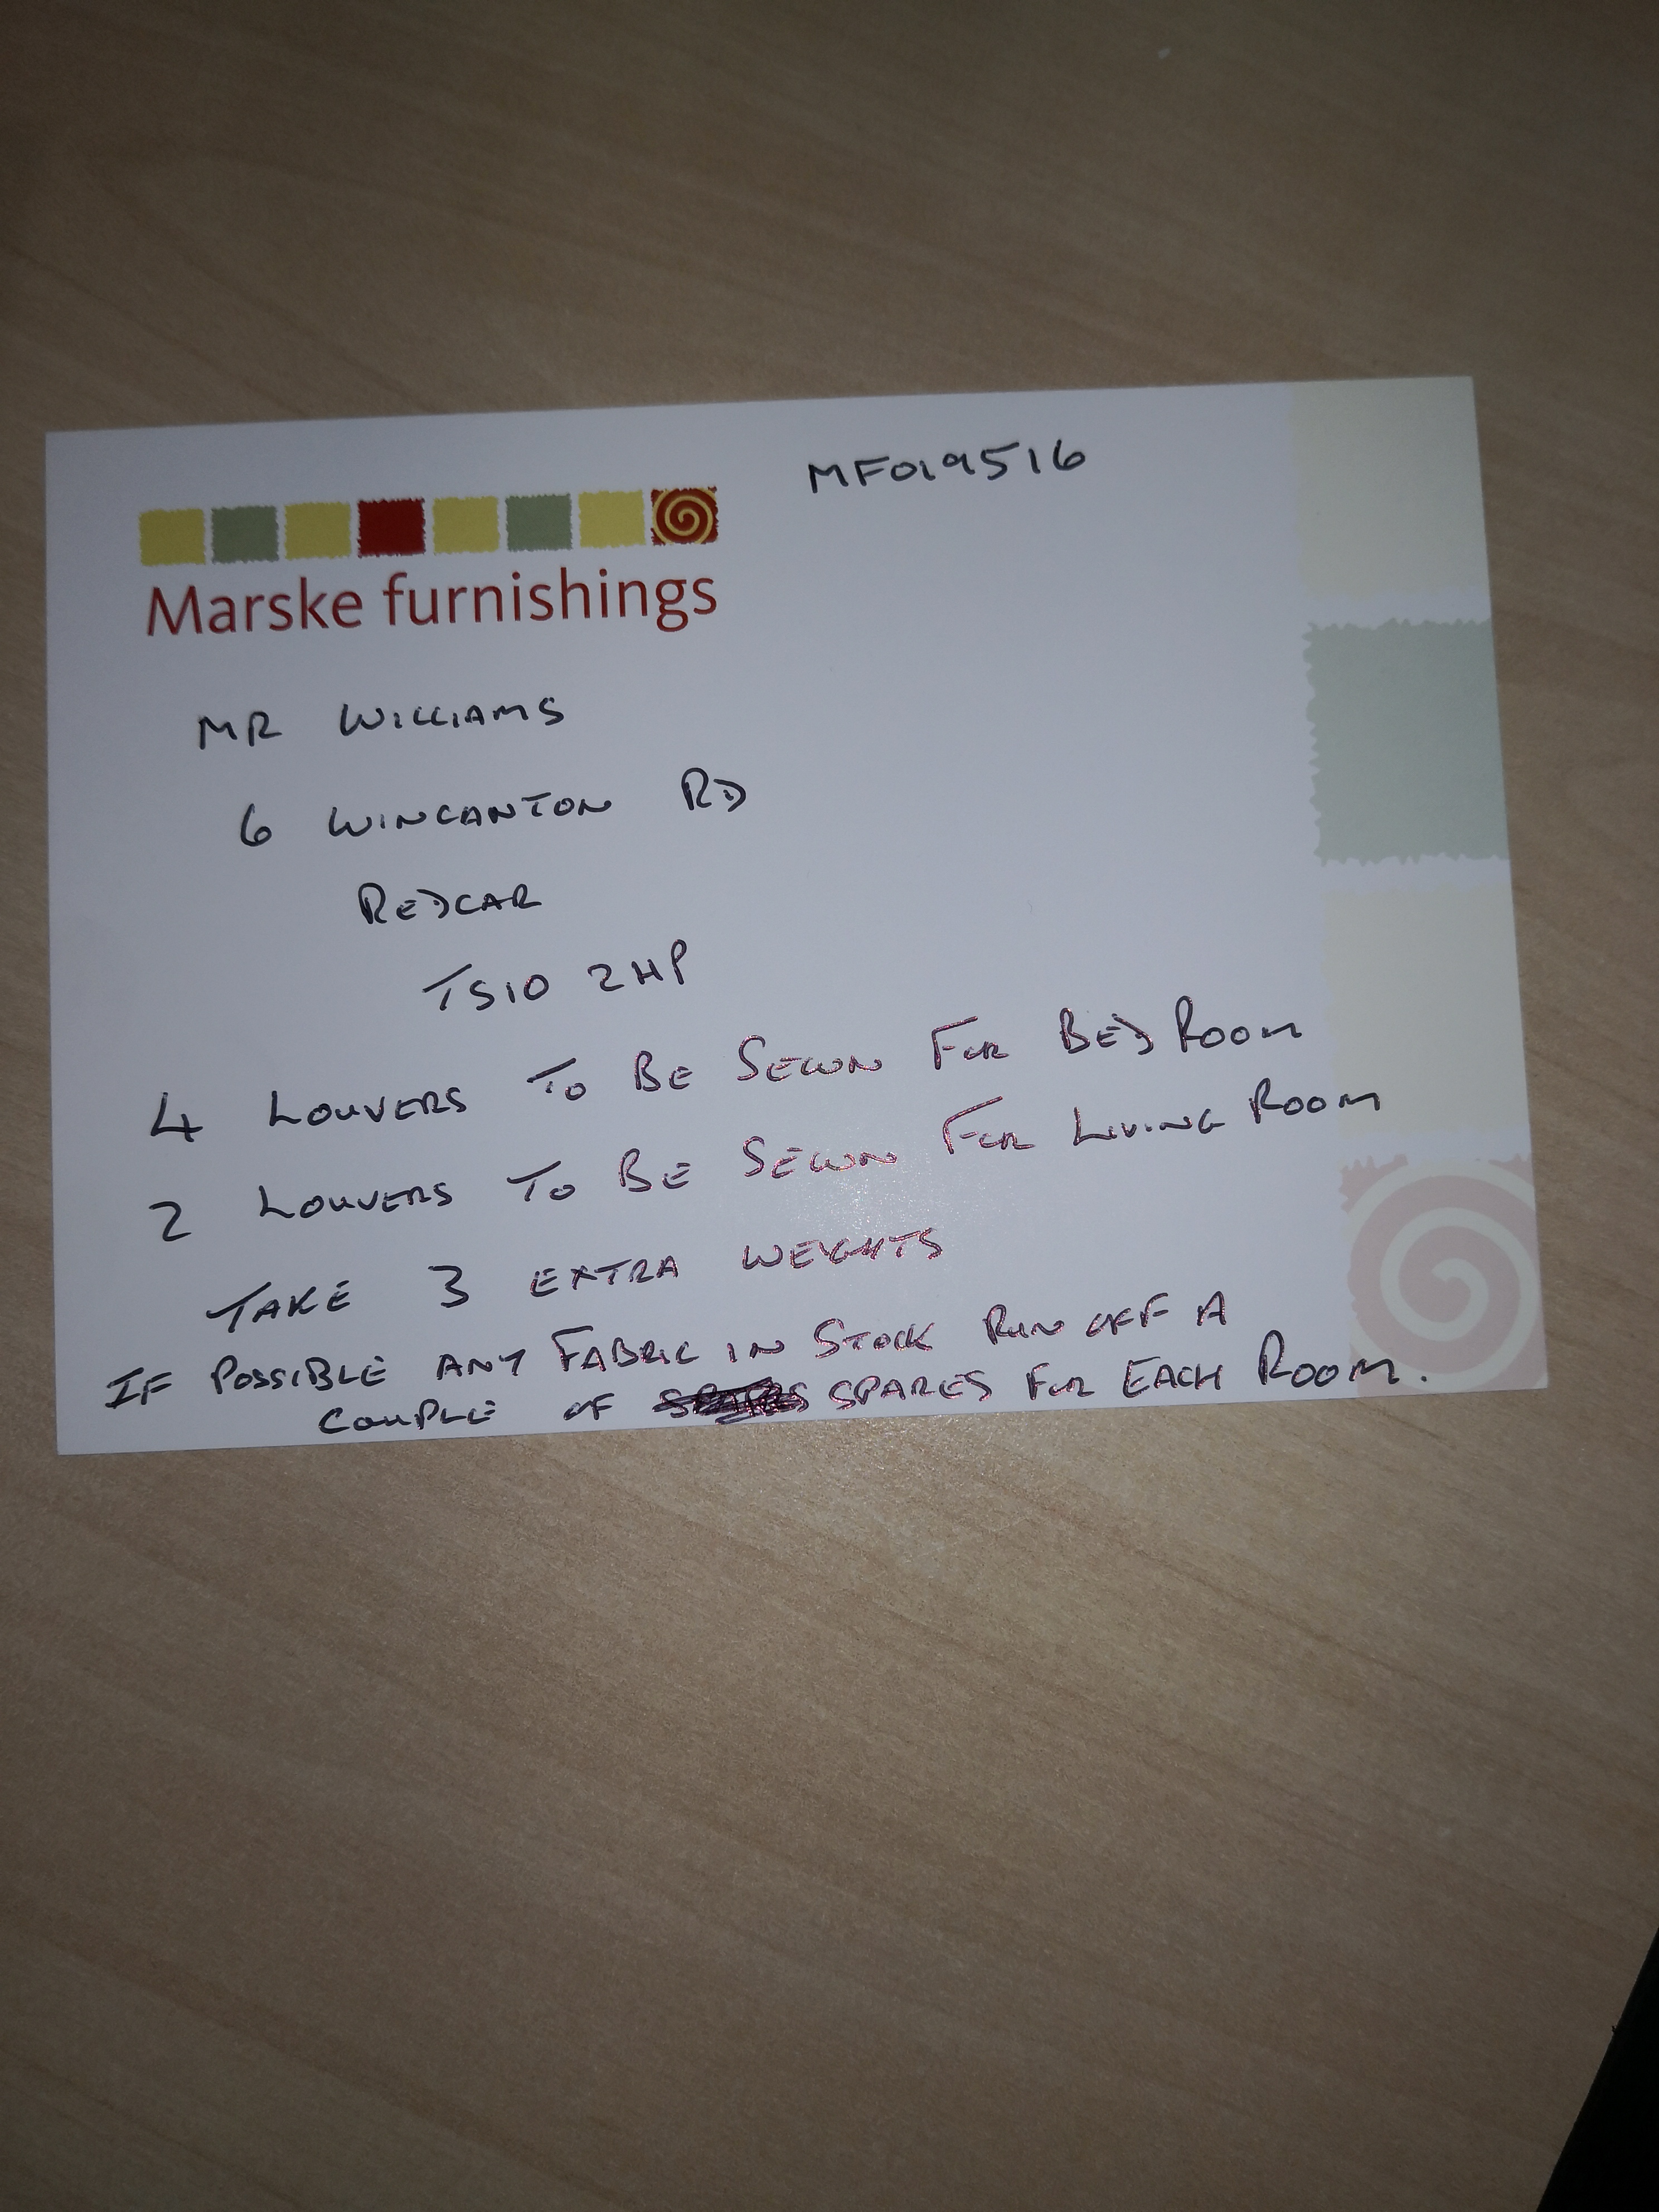 MF019516
Marske furnishings
MR WILLIAMS
6 WINCANTON RD
REDCAR
TS10 2HP
4 LOUVERS TO BE SEWN FOR BED ROOM
2 LOUVERS TO BE SEWN FOR LIVING ROOM
TAKE 3 EXTRA WEIGHTS
IF POSSIBLE ANY FABRIC IN STOCK RUN OFF A
COUPLE OF SPARES FOR EACH ROOM.